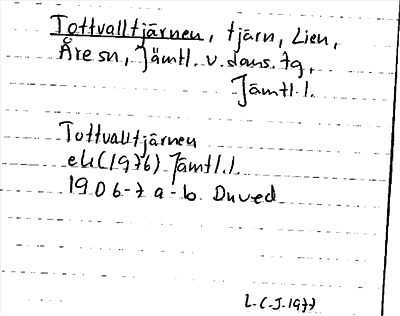 Tottvalltjärnen, tjärn, Lien,
Åre sn, Jämtl. v. doms. tg,
Jämtl. l.
Tottvalltjärnen
ek (1976) Jämtl. l.
1906-7 a-b Duved
L-C-J-1977